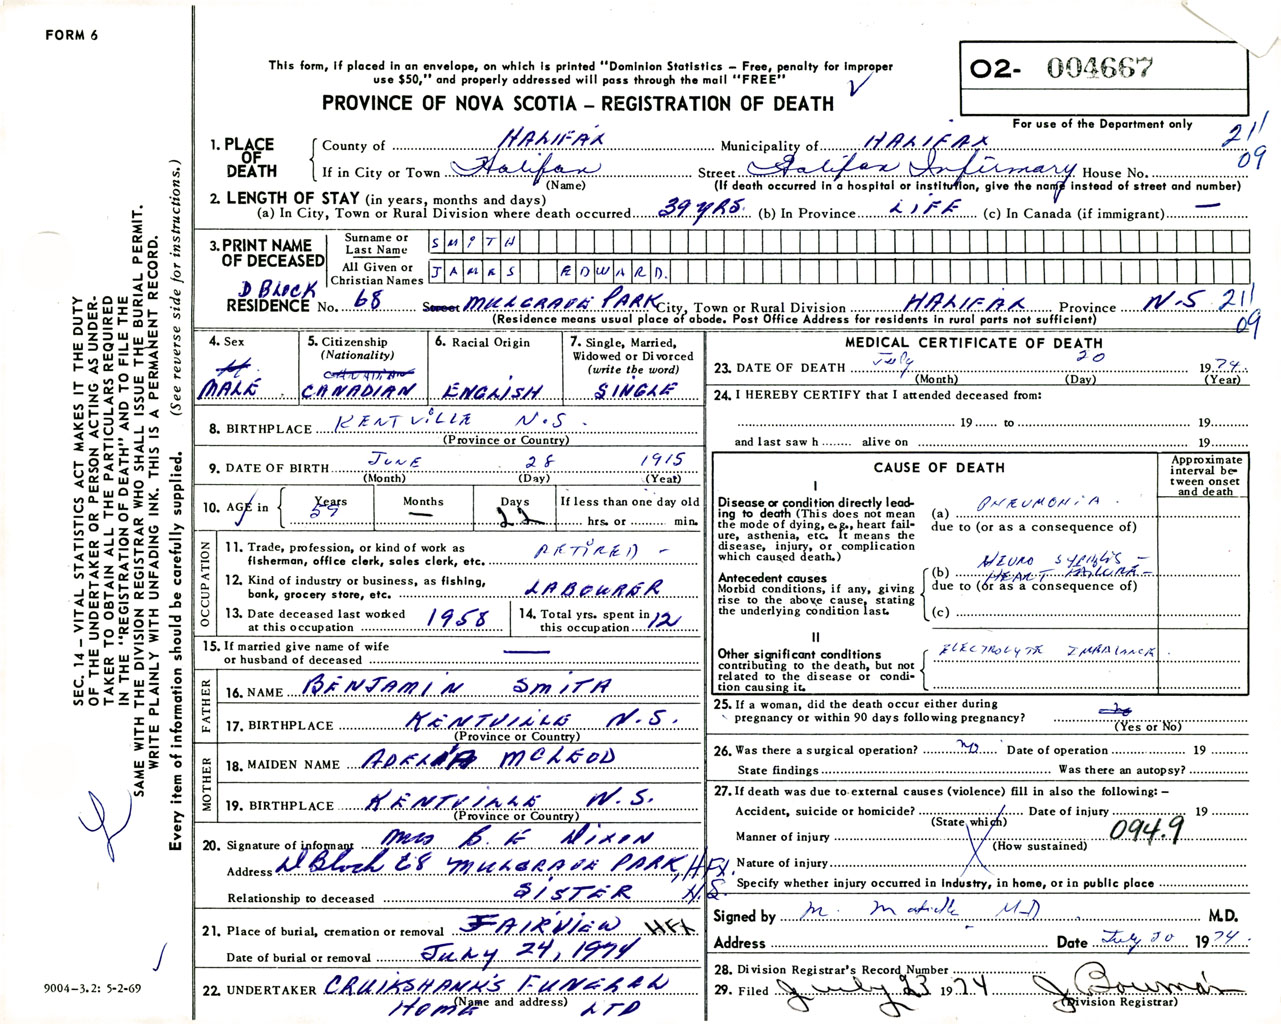 FORM 6
This form, if placed in an envelope, on which is printed "Dominion Statistics – Free, penalty for improper
use $50," and properly addressed will pass through the mail "FREE"
PROVINCE OF NOVA SCOTIA – REGISTRATION OF DEATH
02- 004667
For use of the Department only
211
09
1. PLACE OF DEATH
County of HALIFAX Municipality of HALIFAX
If in City or Town Halifax Street Halifax Infirmary House No.
(Name) (If death occurred in a hospital or institution, give the name instead of street and number)
2. LENGTH OF STAY (in years, months and days)
(a) In City, Town or Rural Division where death occurred 39 YRS. (b) In Province LIFE (c) In Canada (if immigrant) —
3. PRINT NAME OF DECEASED
Surname or Last Name SMITH
All Given or Christian Names JAMES EDWARD.
D BLOCK
RESIDENCE No. 68 Street MULGRAVE PARK City, Town or Rural Division HALIFAX Province N.S 211
09
(Residence means usual place of abode. Post Office Address for residents in rural parts not sufficient)
4. Sex
MALE
5. Citizenship
(Nationality)
CANADIAN
CANADIAN
6. Racial Origin
ENGLISH
7. Single, Married,
Widowed or Divorced
(write the word)
SINGLE
8. BIRTHPLACE KENTVILLE N.S.
(Province or Country)
9. DATE OF BIRTH JUNE 28 1915
(Month) (Day) (Year)
10. AGE in Years 59 Months — Days 22 If less than one day old
hrs. or min.
OCCUPATION
11. Trade, profession, or kind of work as
fisherman, office clerk, sales clerk, etc. RETIRED –
12. Kind of industry or business, as fishing,
bank, grocery store, etc. LABOURER
13. Date deceased last worked
at this occupation 1958
14. Total yrs. spent in
this occupation 12
15. If married give name of wife
or husband of deceased —
FATHER
16. NAME BENJAMIN SMITH
17. BIRTHPLACE KENTVILLE N.S.
(Province or Country)
MOTHER
18. MAIDEN NAME ADELIA MCLEOD
19. BIRTHPLACE KENTVILLE N.S.
(Province or Country)
20. Signature of informant Mrs B. E Dixon
Address D Block 68 MULGRAVE PARK, HFX.
Relationship to deceased SISTER N.S.
21. Place of burial, cremation or removal FAIRVIEW HFX
Date of burial or removal July 24, 1974
22. UNDERTAKER CRUIKSHANKS FUNERAL
(Name and address)
HOME LTD
MEDICAL CERTIFICATE OF DEATH
23. DATE OF DEATH July 20 1974.
(Month) (Day) (Year)
24. I HEREBY CERTIFY that I attended deceased from:
19 to 19
and last saw h alive on 19
CAUSE OF DEATH
Approximate
interval be-
tween onset
and death
I
Disease or condition directly lead-
ing to death (This does not mean
the mode of dying, e.g., heart fail-
ure, asthenia, etc. It means the
disease, injury, or complication
which caused death.)
(a) PNEUMONIA.
due to (or as a consequence of)
Antecedent causes
Morbid conditions, if any, giving
rise to the above cause, stating
the underlying condition last.
NEURO SYPHILIS –
(b) HEART FAILURE –
due to (or as a consequence of)
(c)
II
Other significant conditions
contributing to the death, but not
related to the disease or condi-
tion causing it.
ELECTROLYTE IMBALANCE.
25. If a woman, did the death occur either during
pregnancy or within 90 days following pregnancy?
(Yes or No)
26. Was there a surgical operation? NO Date of operation 19
State findings Was there an autopsy?
27. If death was due to external causes (violence) fill in also the following: –
Accident, suicide or homicide? Date of injury 19
(State which)
Manner of injury 094.9
(How sustained)
Nature of injury
Specify whether injury occurred in Industry, in home, or in public place
Signed by M. M.D M.D.
Address Date July 20 1974.
28. Division Registrar's Record Number
29. Filed July 23 1974 J Bouman
(Division Registrar)
SEC. 14 – VITAL STATISTICS ACT MAKES IT THE DUTY
OF THE UNDERTAKER OR PERSON ACTING AS UNDER-
TAKER TO OBTAIN ALL THE PARTICULARS REQUIRED
IN THE "REGISTRATION OF DEATH" AND TO FILE THE
SAME WITH THE DIVISION REGISTRAR WHO SHALL ISSUE THE BURIAL PERMIT.
WRITE PLAINLY WITH UNFADING INK. THIS IS A PERMANENT RECORD.
Every item of information should be carefully supplied. (See reverse side for instructions.)
9004-3.2: 5-2-69